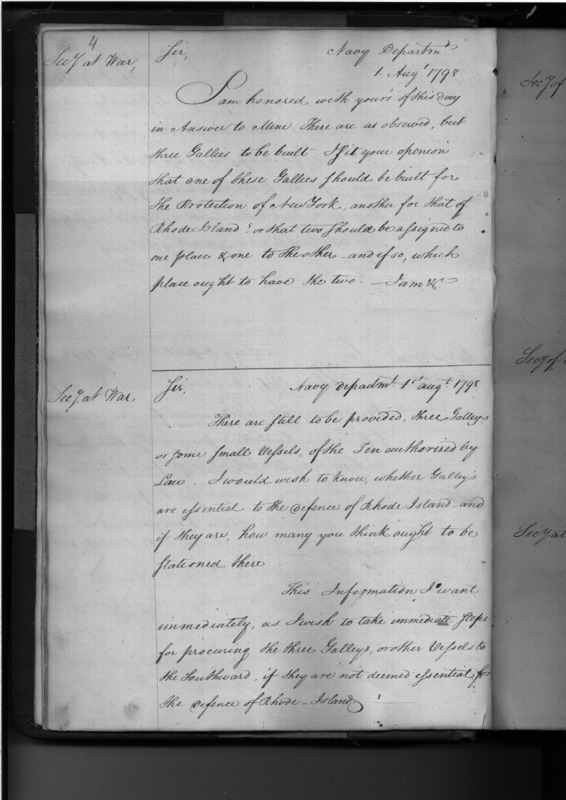 4
Secy at War,
Sir,
Navy Departmt
1 Augt 1798
I am honored with yours of this day
in Answer to Mine There are as observed, but
three Gallies to be built Is it your openion
that one of these Gallies should be built for
the Protection of New York, another for that of
Rhode Island? or that two should be assigned to
one place & one to the other and if so, which
place ought to have the two. I am &c
Secy at War
Sir,
Navy Departmt 1st augt 1798
There are still to be provided, three Galleys
or some small Vessels, of the Ten authorised by
Law. I would wish to know, whether Galley's
are essential to the defence of Rhode Island and
if they are, how many you think ought to be
stationed there
This Information I want
immediately, as I wish to take immediate steps
for procuring the three Galleys, or other Vessels to
the Southward, if they are not deemed essential for
the defence of Rhode-Island
Secy of
Secy of
Secy at